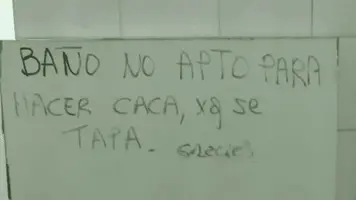 BAÑO NO APTO PARA
HACER CACA, xq se
TAPA.